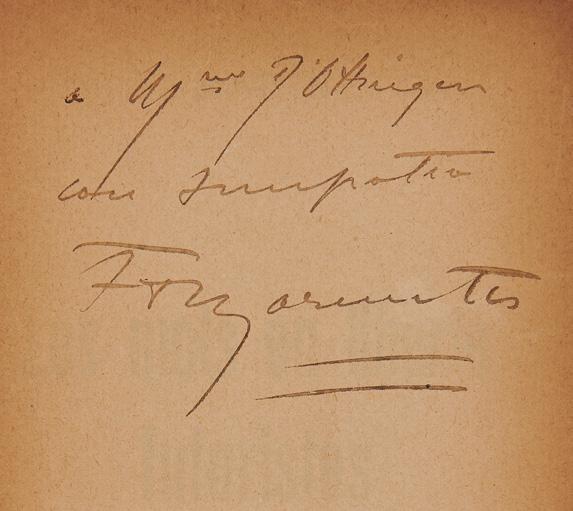 a Mme D'Ottingen
con simpatia
FTMarinetti